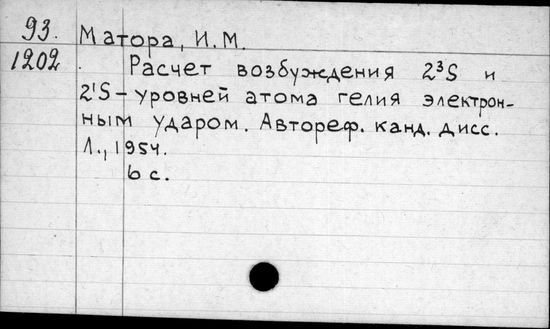 93. Матора, И.М.
1202. Расчет возбуждения 2³S и
2¹S-уровней атома гелия электрон-
ным ударом. Автореф. канд. дисс.
Л., 1954.
6 с.